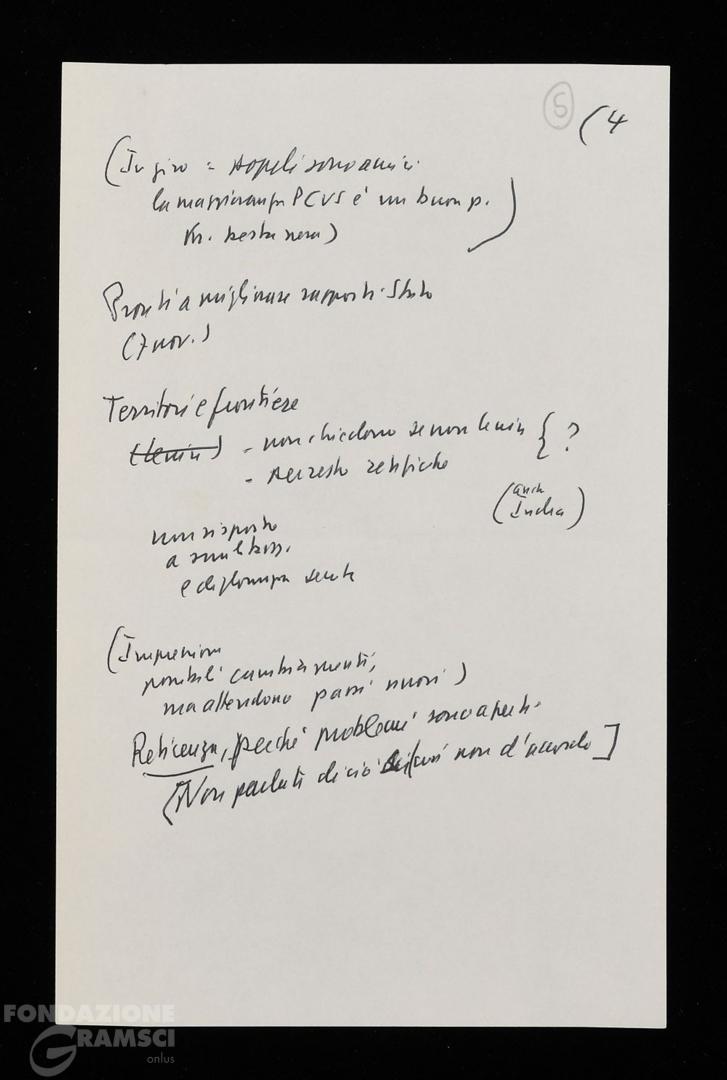 5
(4
(In giro = popoli sono amici
la maggioranza PCUS è un buon p.
Kr. bestia nera)
Pronti a migliorare rapporti Stato
(7 nov.)
Territori e frontiere
(Lenin) - non chiedono se non Lenin { ?
- del resto rettifiche
(anche
India)
non risposto
a
e diplomazia
(Impressioni
possibili cambiamenti,
ma attendono passi nuovi)
Reticenza, perché problemi sono aperti.
[Non parlato di ciò su cui non d'accordo]
FONDAZIONE
GRAMSCI
onlus